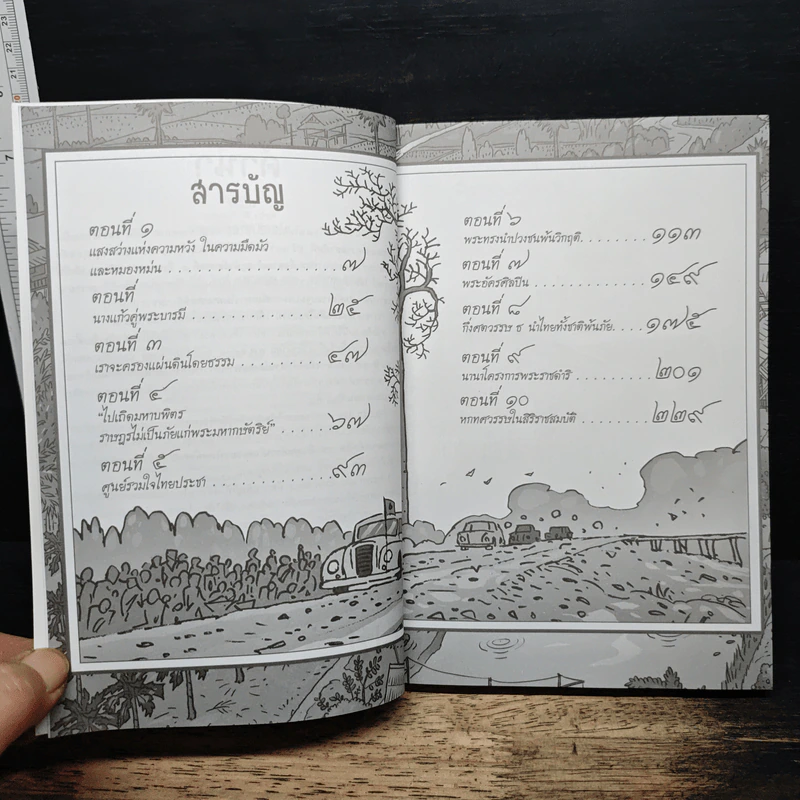 สารบัญ
ตอนที่ ๑
แสงสว่างแห่งความหวัง ในความมืดมัว
และหมองหม่น . . . . . . . . . . . . . . . . . . ๗
ตอนที่
นางแก้วคู่พระบารมี . . . . . . . . . . . . . . ๒๕
ตอนที่ ๓
เราจะครองแผ่นดินโดยธรรม . . . . . . . . . ๔๗
ตอนที่ ๔
“ไปเถิดมหาบพิตร
ราษฎรไม่เป็นภัยแก่พระมหากษัตริย์” . . . . . . ๖๗
ตอนที่ ๕
ศูนย์รวมใจไทยประชา . . . . . . . . . . . . ๙๓
ตอนที่ ๖
พระทรงนำปวงชนพ้นวิกฤติ. . . . . . . . ๑๑๓
ตอนที่ ๗
พระอัครศิลปิน . . . . . . . . . . . . . . . ๑๔๙
ตอนที่ ๘
กึ่งศตวรรษ ธ นำไทยทั้งชาติพ้นภัย. . . . ๑๗๕
ตอนที่ ๙
นานาโครงการพระราชดำริ . . . . . . . . . ๒๐๑
ตอนที่ ๑๐
หกทศวรรษในสิริราชสมบัติ . . . . . . . . ๒๒๙
23
22
21
7